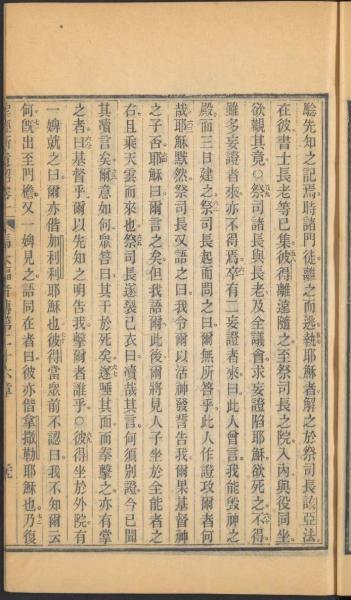 驗先知之記焉時諸門徒離之而逸執耶穌者解之於祭司長該亞法
在彼書士長老等已集彼得離遠隨之至祭司長之院入內與役同坐
欲觀其竟○祭司諸長與長老及全議會求妄證陷耶穌欲死之不得
雖多妄證者來亦不得焉卒有二妄證者來曰此人曾言我能毀神之
殿而三日建之祭司長起而問之曰爾無所答乎此人作證攻爾者何
哉耶穌默然祭司長又語之曰我令爾以活神發誓告我爾果基督神
之子否耶穌曰爾言之矣但我語爾此後爾將見人子坐於全能者之
右且乘天雲而來也祭司長遂裂己衣曰瀆哉其言何須別證今已聞
其瀆言矣爾意如何眾答曰其干於死矣遂唾其面而拳擊之亦有掌
之者曰基督乎爾以先知之明告我擊爾者誰乎○彼得坐於外院有
一婢就之曰爾亦偕加利利耶穌也彼得當眾前不認曰我不知爾云
何既出至門檐又一婢見之語同在者曰彼亦偕拿撒勒耶穌也乃復
馬太福音傳第二十六章